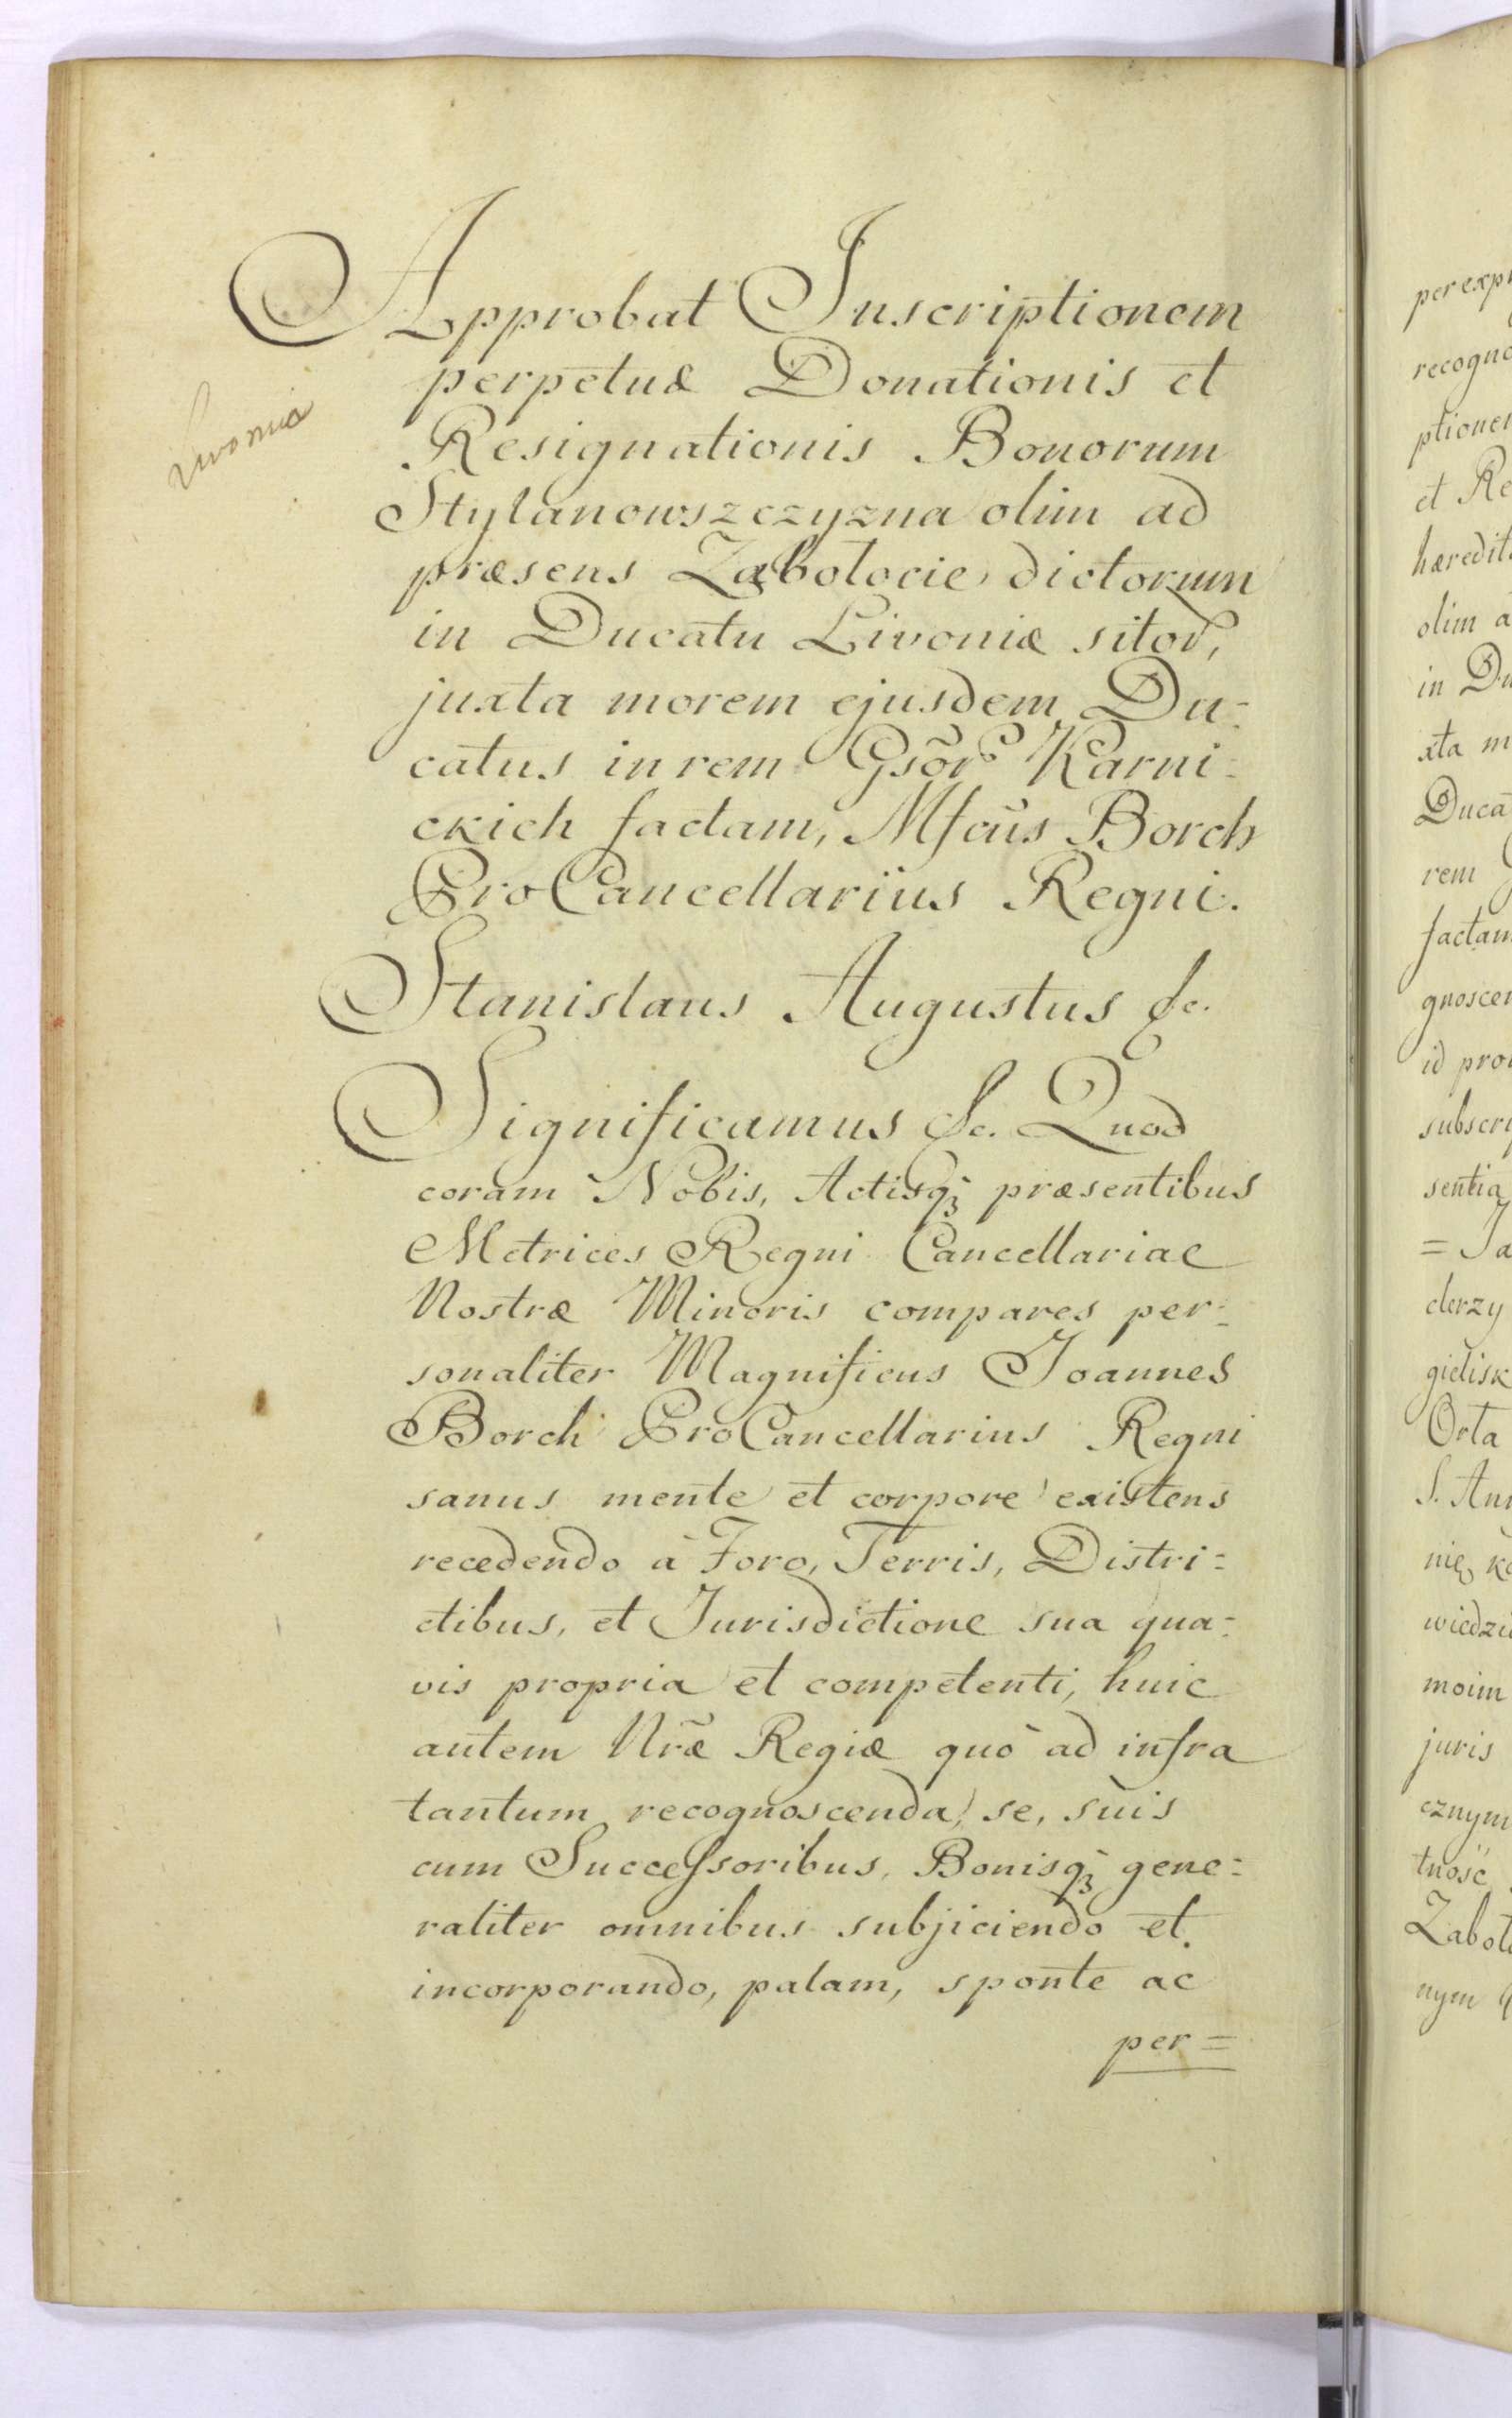 Approbat Inscriptionem
perpetuæ Donationis et
Resignationis Bonorum
Livonia
Stylanowszczyzna olim ad
præsens Zabołocie dictorum
in Ducatu Livoniæ sitor,
juxta morem ejusdem Du=
catus in rem Gsõr Karni=
ckich factam, Mfcūs Borch
ProCancellarius Regni.
Stanislaus Augustus &c.
Significamus &c. Quod
coram Nobis, Actisq̃ præsentibus
Metrices Regni Cancellariae
Nostræ Minoris compares per=
sonaliter Magnificus Joannes
Borch ProCancellarius Regni
sanus mente et corpore existens
recedendo à Foro, Terris, Distri=
ctibus, et Jurisdictione sua qua=
vis propria et competenti, huic
autem Nræ̃ Regiæ quò ad infra
tantum recognoscenda, se, suis
cum Succeſsoribus, Bonisq̃ gene=
raliter omnibus subjiciendo et
incorporando, palam, sponte ac
per=
perexp
recogno
ptionem
et Re
hæredit
olim a
in Du
xta m
Duca
rem
factam
gnoscen
id pro
subscri
sentia
= Ja
derzy
gielisk
Orta
S. Ann
nię, k
wiedzi
moim
juris
cznym
tność
Zaboł
nym